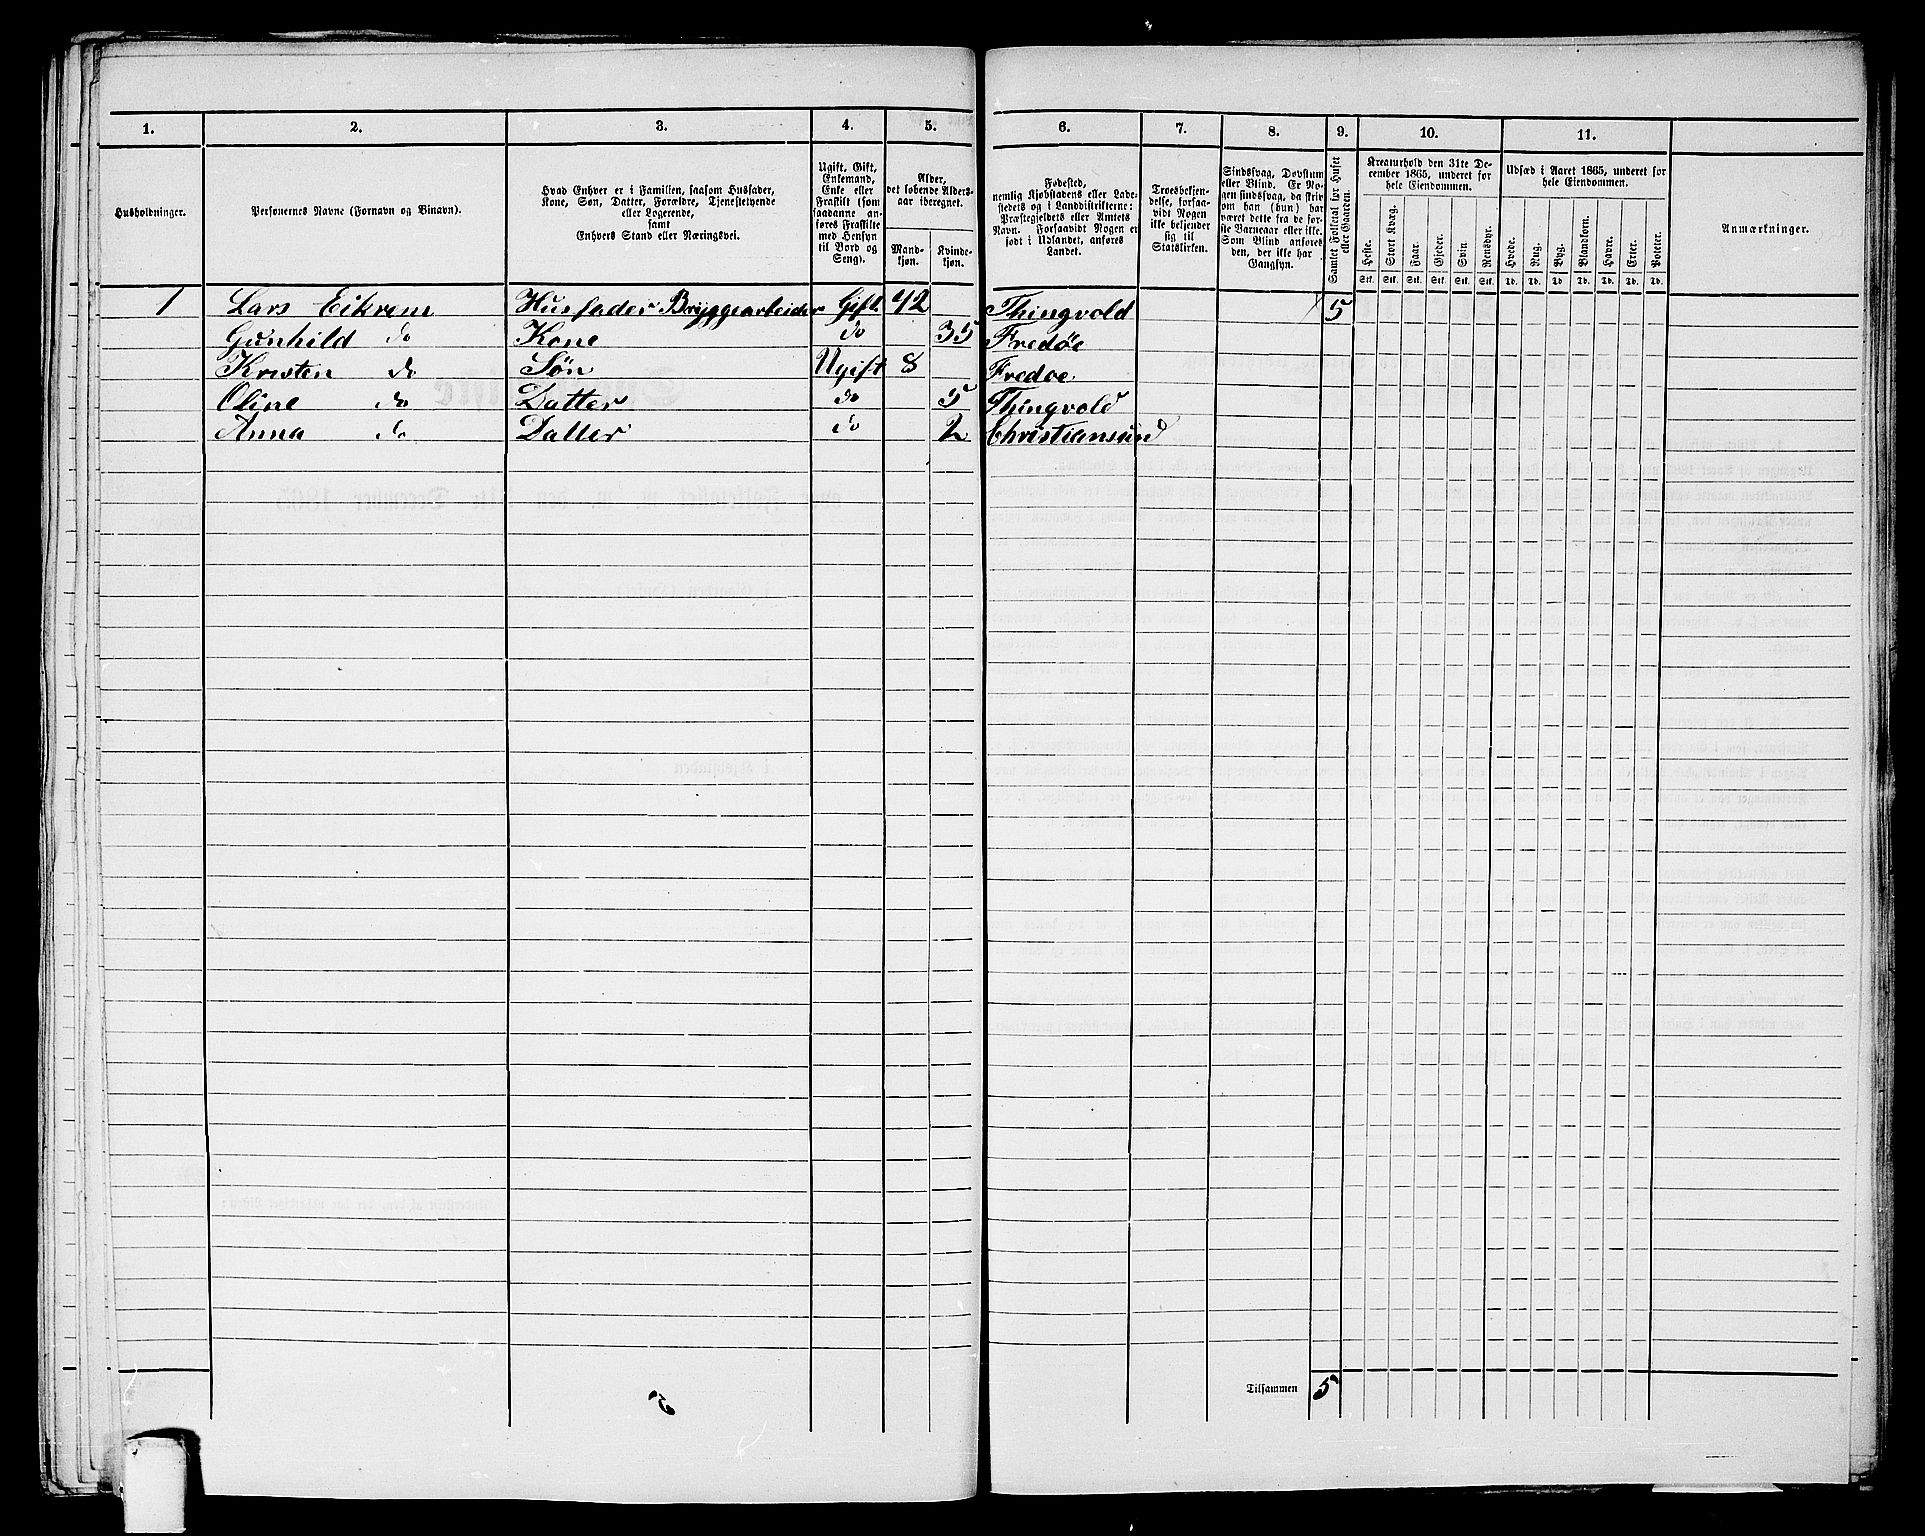 1. 2. 3. 4. 5. 6. 7. 8. 9. 10. 11.
Husholdninger.
Personernes Navne (Fornavn og Binavn).
Hvad Enhver er i Familien, saasom Husfader,
Kone, Søn, Datter, Forældre, Tjenestetyende
eller Logerende,
samt
Enhvers Stand eller Næringsvei.
Ugift, Gift,
Enkemand,
Enke eller
Fraskilt (som
saadanne an-
føres Fraskilte
med Hensyn
til Bord og
Seng).
Alder,
det løbende Alders-
aar iberegnet.
Mand-
kjøn.
Kvinde-
kjøn.
Fødested,
nemlig Kjøbstadens eller Lade-
stedets og i Landdistrikterne:
Præstegjeldets eller Amtets
Navn. Forsaavidt Nogen er
født i Udlandet, anføres
Landet.
Troesbekjen-
delse, forsaa-
vidt Nogen
ikke bekjender
sig til
Statskirken.
Sindssvag, Døvstum
eller Blind. Er No-
gen sindssvag, da skriv
om han (hun) har
været dette fra de før-
ste Barneaar eller ikke.
Som Blind anføres
den, der ikke har
Gangsyn.
Samlet Folketal for Huset
eller Gaarden.
Kreaturhold den 31te De-
cember 1865, underet for
hele Eiendommen.
Heste. Stort Kvæg. Faar. Gjeder. Svin. Rensdyr.
Stk. Stk. Stk. Stk. Stk. Stk.
Udsæd i Aaret 1865, underet for
hele Eiendommen.
Hvede. Rug. Byg. Blandkorn. Havre. Erter. Poteter.
Td. Td. Td. Td. Td. Td. Td.
Anmærkninger.
1 Lars Eikrem Husfader Bryggearbeider Gift 42 Thingvold 5
Gunhild do Kone do 35 Fredøe
Kristen do Søn Ugift 8 Fredøe
Oline do Datter do 5 Thingvold
Anna do Datter do 2 Christiansund
Tilsammen 5